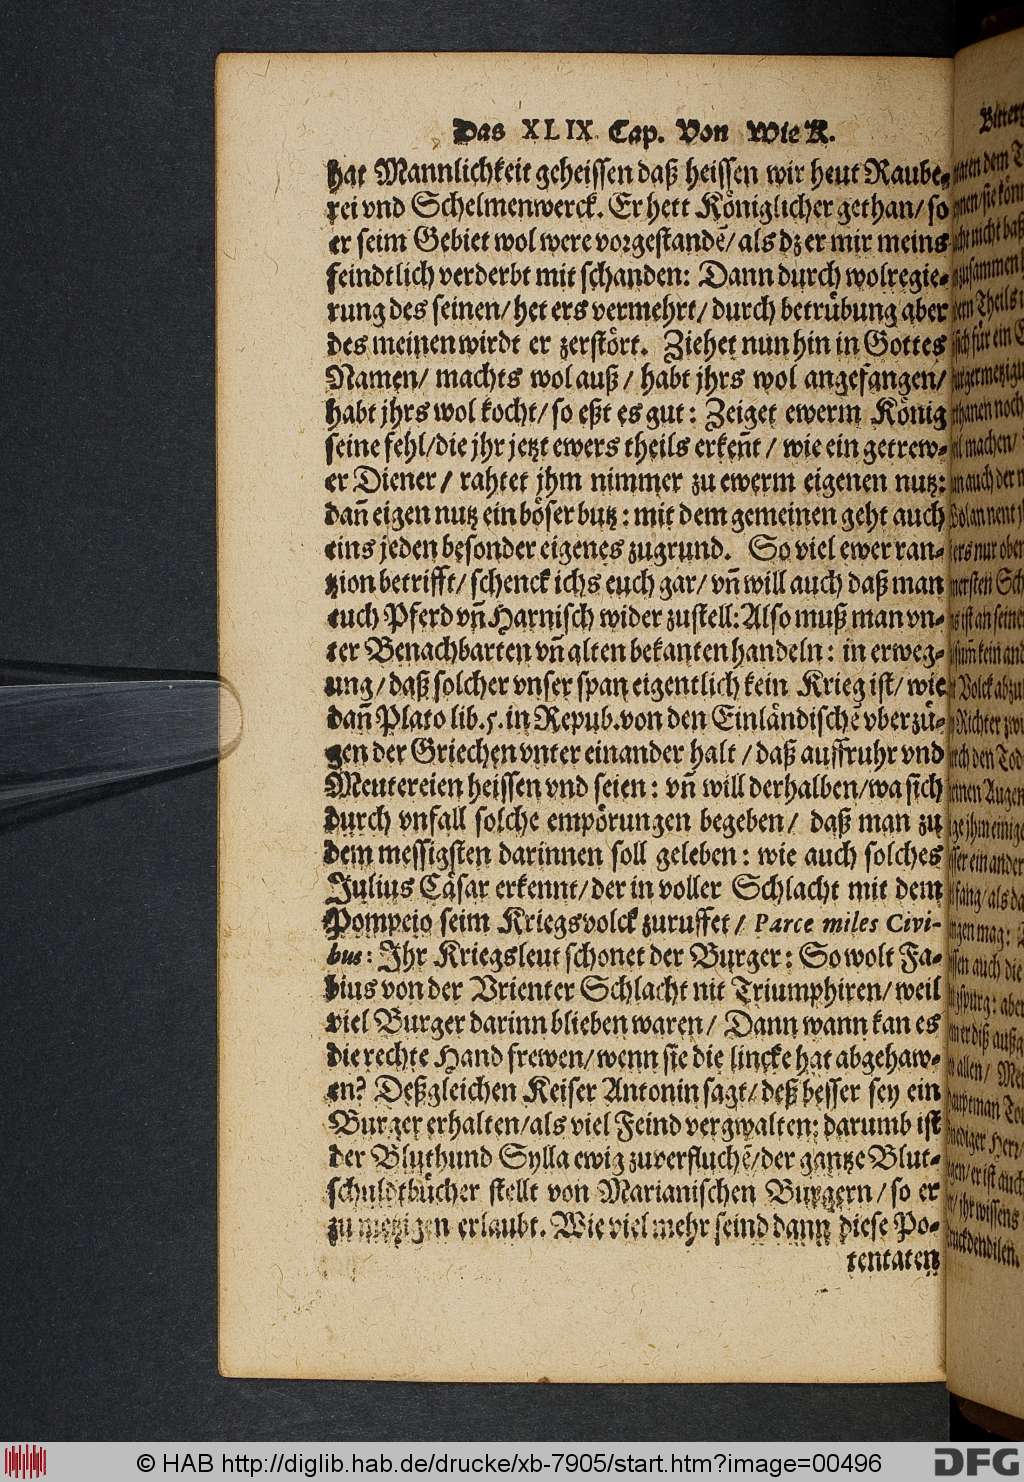 Das XLIX. Cap. Von Wie K.
hat Mannlichkeit geheissen daß heissen wir heut Raube-
rei vnd Schelmenwerck. Er hett Königlicher gethan/ so
er seim Gebiet wol were vorgestandē/ als dz er mir meins
feindtlich verderbt mit schanden: Dann durch wolregie-
rung des seinen/ het ers vermehrt/ durch betrübung aber
des meinen wirdt er zerstört. Ziehet nun hin in Gottes
Namen/ machts wol auß/ habt jhrs wol angefangen/
habt jhrs wol kocht/ so eßt es gut: Zeiget ewerm König
seine fehl/ die jhr jetzt ewers theils erkeñt/ wie ein getrew-
er Diener/ rahtet jhm nimmer zu ewerm eigenen nutz:
dañ eigen nutz ein böser butz: mit dem gemeinen geht auch
eins jeden besonder eigenes zugrund. So viel ewer ran-
tzion betrifft/ schenck ichs euch gar/ vñ will auch daß man
euch Pferd vñ Harnisch wider zustell: Also muß man vn-
ter Benachbarten vñ alten bekanten handeln: in erweg-
ung/ daß solcher vnser span eigentlich kein Krieg ist/ wie
dañ Plato lib. 5. in Repub. von den Einländischē vberzü-
gen der Griechen vnter einander halt/ daß auffruhr vnd
Meutereien heissen vnd seien: vñ will derhalben/ wa sich
durch vnfall solche empörungen begeben/ daß man zu
dem messigsten darinnen soll geleben: wie auch solches
Julius Cäsar erkennt/ der in voller Schlacht mit dem
Pompeio seim Kriegsvolck zuruffet/ Parce miles Civi-
bus: Jhr Kriegsleut schonet der Burger: So wolt Fa-
bius von der Vrienter Schlacht nit Triumphiren/ weil
viel Burger darinn blieben waren/ Dann wann kan es
die rechte Hand frewen/ wenn sie die lincke hat abgehaw-
en? Deßgleichen Keiser Antonin sagt/ deß besser sey ein
Burger erhalten/ als viel Feind vergwalten: darumb ist
der Bluthund Sylla ewig zuverfluchē/ der gantze Blut-
schuldtbücher stellt von Marianischen Burgern/ so er
zu metzigen erlaubt. Wie viel mehr seind dann diese Po-
tentaten
© HAB http://diglib.hab.de/drucke/xb-7905/start.htm?image=00496
DFG